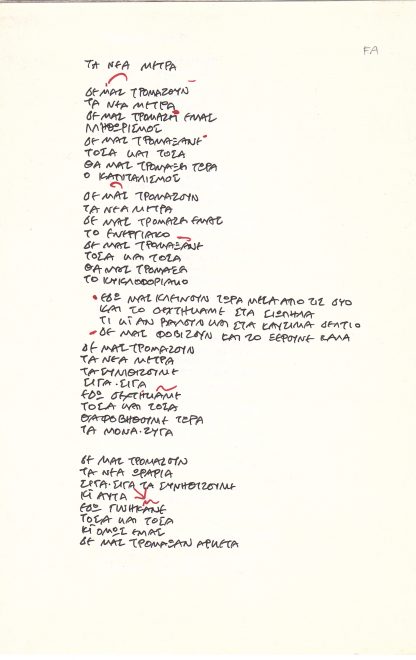 FA
ΤΑ ΝΕΑ ΜΕΤΡΑ
ΔΕ ΜΑΣ ΤΡΟΜΑΖΟΥΝ
ΤΑ ΝΕΑ ΜΕΤΡΑ
ΔΕ ΜΑΣ ΤΡΟΜΑΖΕΙ ΕΜΑΣ
ΠΛΗΘΩΡΙΣΜΟΣ
ΔΕ ΜΑΣ ΤΡΟΜΑΞΑΝΕ
ΤΟΣΑ ΚΑΙ ΤΟΣΑ
ΘΑ ΜΑΣ ΤΡΟΜΑΞΕΙ ΤΩΡΑ
Ο ΚΑΠΙΤΑΛΙΣΜΟΣ
ΔΕ ΜΑΣ ΤΡΟΜΑΖΟΥΝ
ΤΑ ΝΕΑ ΜΕΤΡΑ
ΔΕ ΜΑΣ ΤΡΟΜΑΖΕΙ ΕΜΑΣ
ΤΟ ΕΝΕΡΓΕΙΑΚΟ
ΔΕ ΜΑΣ ΤΡΟΜΑΞΑΝΕ
ΤΟΣΑ ΚΑΙ ΤΟΣΑ
ΘΑ ΜΑΣ ΤΡΟΜΑΞΕΙ
ΤΟ ΚΥΚΛΟΦΟΡΙΑΚΟ
ΕΔΩ ΜΑΣ ΚΛΕΙΝΟΥΝ ΤΩΡΑ ΜΕΣΑ ΑΠΟ ΤΙΣ ΔΥΟ
ΚΑΙ ΤΟ
ΣΤΑ ΣΙΩΠΗΛΑ
ΤΙ ΚΙ ΑΝ ΒΑΛΟΥΝ ΚΑΙ ΣΤΑ ΚΑΥΣΙΜΑ ΔΕΛΤΙΟ
ΔΕ ΜΑΣ ΦΟΒΙΖΟΥΝ ΚΑΙ ΤΟ ΞΕΡΟΥΝΕ ΚΑΛΑ
ΔΕ ΜΑΣ ΤΡΟΜΑΖΟΥΝ
ΤΑ ΝΕΑ ΜΕΤΡΑ
ΤΑ ΣΥΝΗΘΙΖΟΥΜΕ
ΣΙΓΑ·ΣΙΓΑ
ΕΔΩ
ΤΟΣΑ ΚΑΙ ΤΟΣΑ
ΘΑ ΦΟΒΗΘΟΥΜΕ ΤΩΡΑ
ΤΑ ΜΟΝΑ·ΖΥΓΑ
ΔΕ ΜΑΣ ΤΡΟΜΑΖΟΥΝ
ΤΑ ΝΕΑ ΩΡΑΡΙΑ
ΣΙΓΑ·ΣΙΓΑ ΤΑ ΣΥΝΗΘΙΖΟΥΜΕ
ΚΙ ΑΥΤΑ
ΕΔΩ
ΤΟΣΑ ΚΑΙ ΤΟΣΑ
ΚΙ ΟΜΩΣ ΕΜΑΣ
ΔΕ ΜΑΣ ΤΡΟΜΑΞΑΝ ΑΡΚΕΤΑ